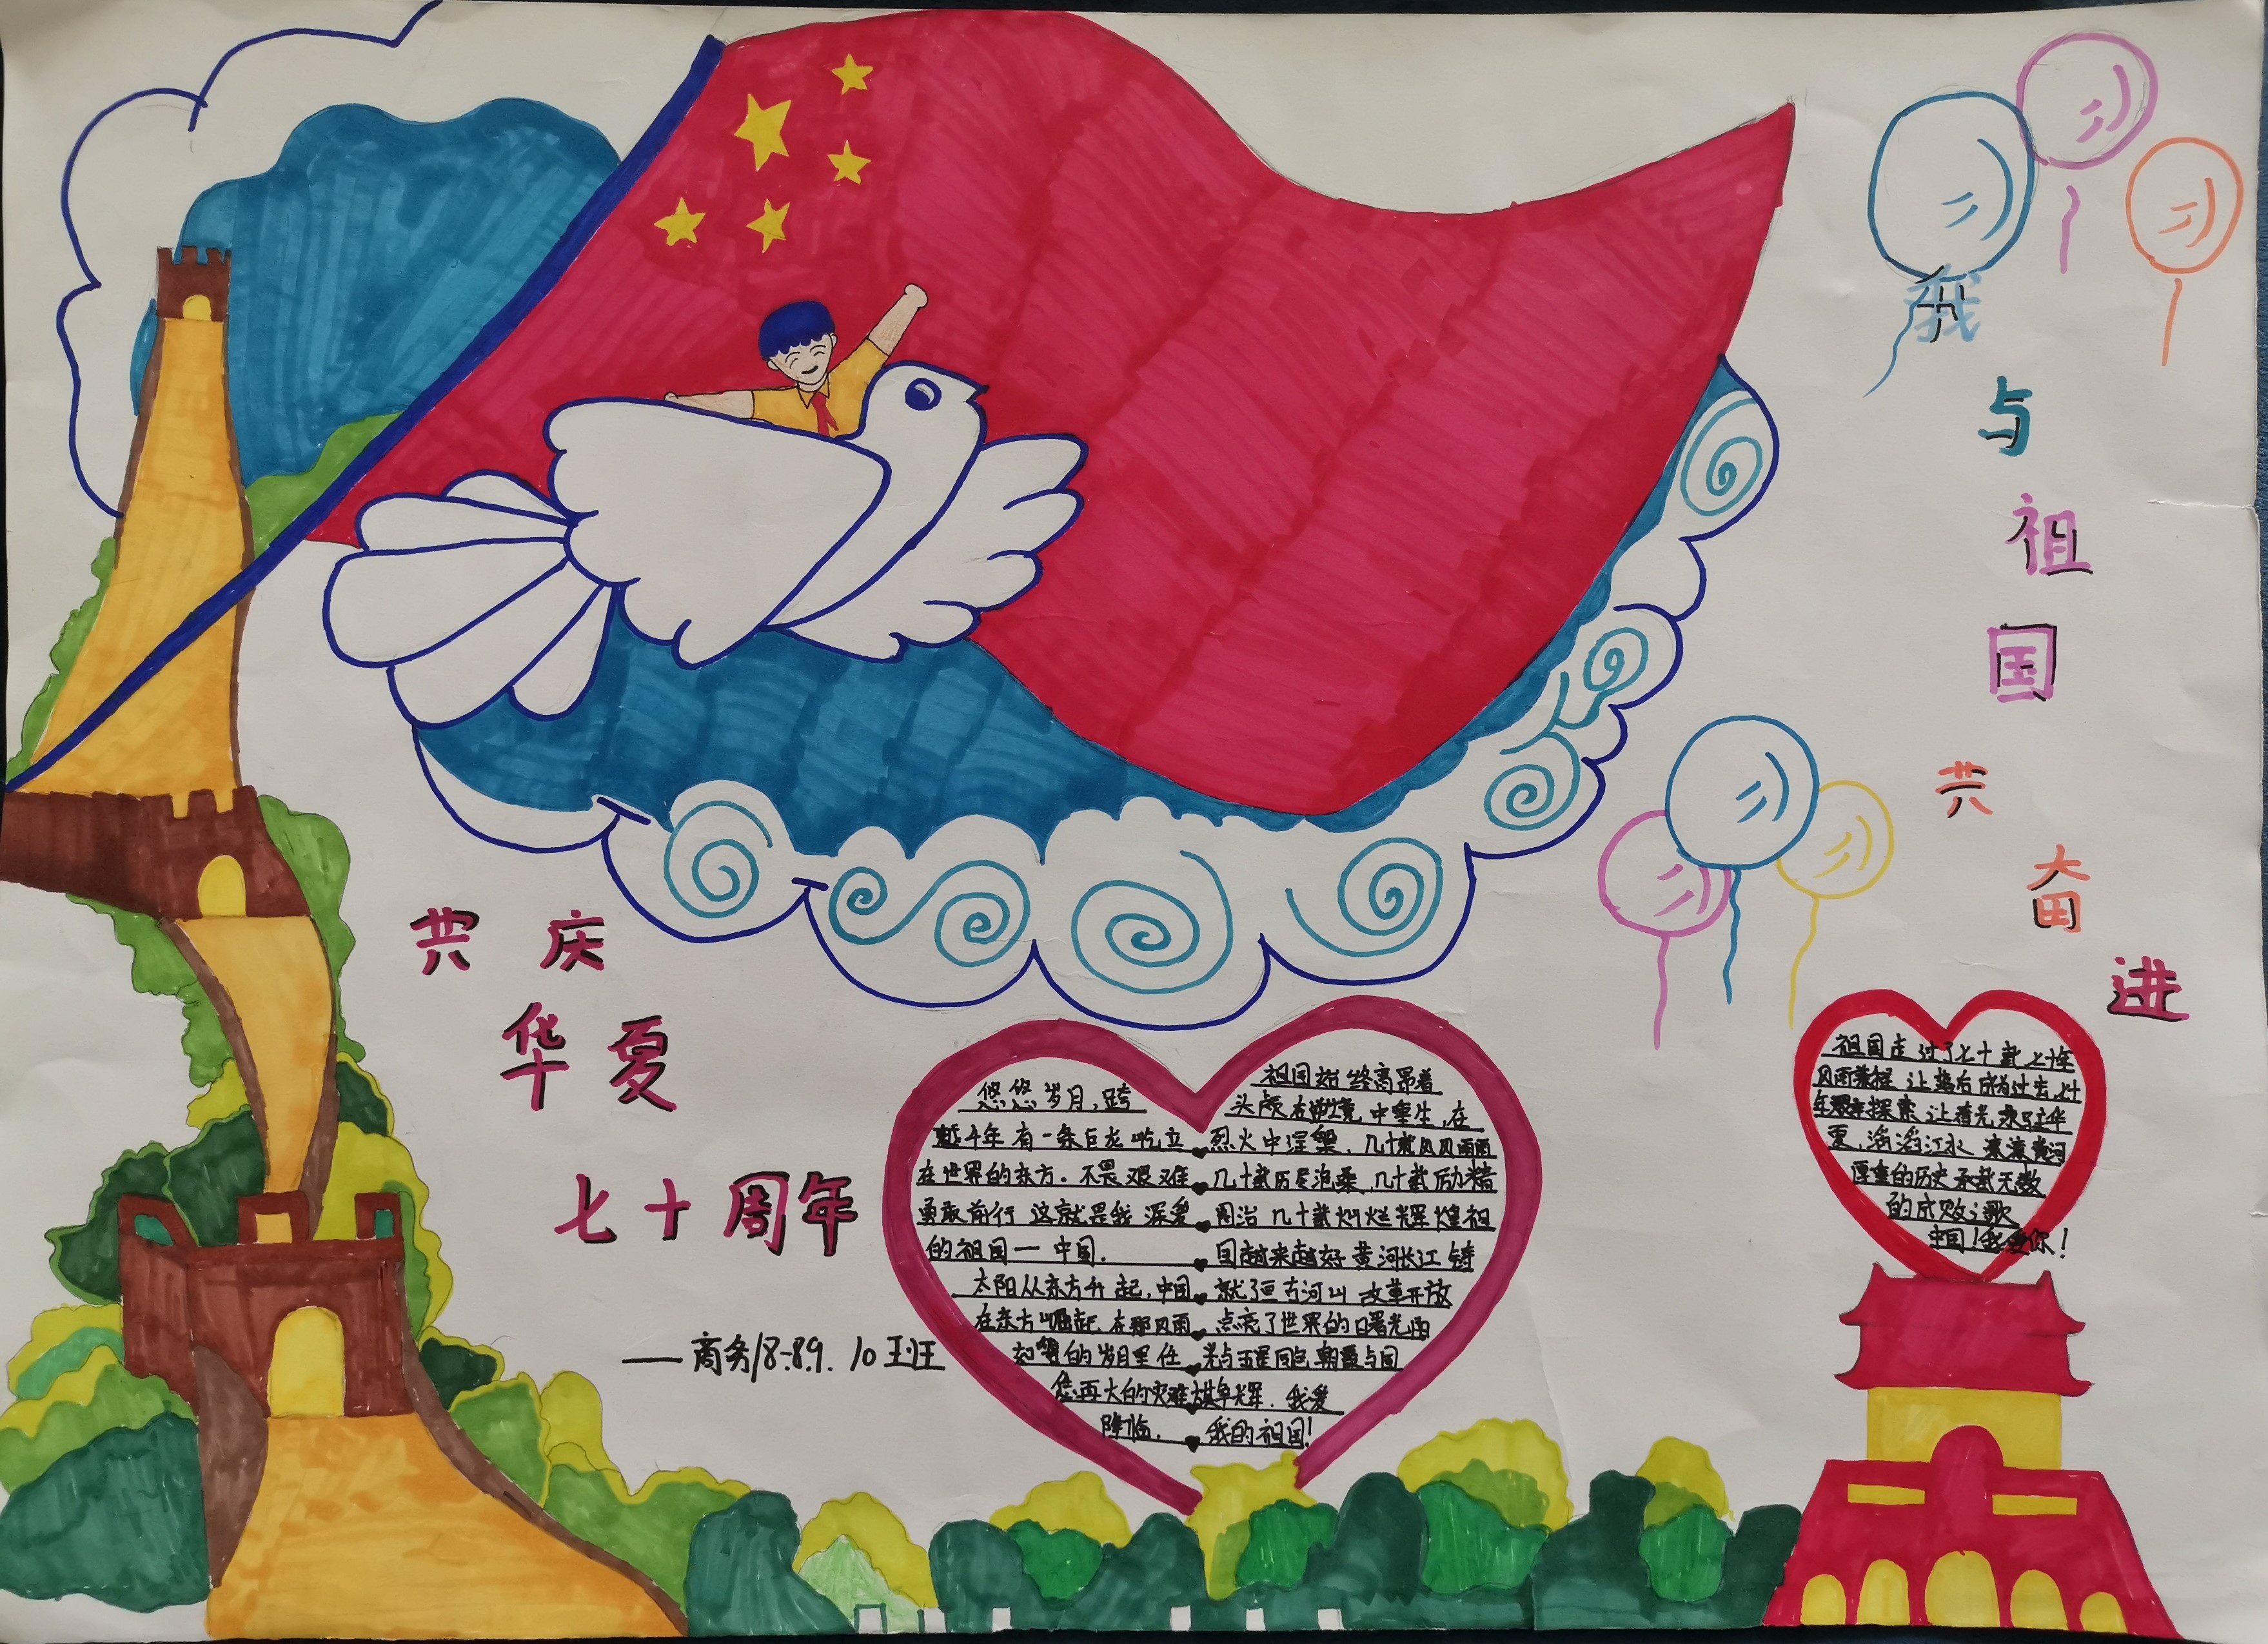 我与祖国共奋进
共庆
华夏
七十周年
——商务18-8.9.10班
悠悠岁月,跨
越千年有一条巨龙屹立
在世界的东方。不畏艰难
勇敢前行 这就是我 深爱
的祖国—中国.
太阳从东方升起,中国
在东方崛起 在那风雨
如 的岁月里任
您再大的灾难
降临.
祖国始终高昂着
头颅 在逆境中重生,在
烈火中涅槃.几十载风风雨雨
几十载历尽沧桑,几十载励精
图治 几十载灿烂辉煌祖
国越来越好 黄河长江铸
就了亘古河山 改革开放
点亮了世界的曙光 阳
光与五星同色 朝霞与国
旗争辉.我爱
我的祖国!
祖国走过了七十载 七十年
风雨兼程 让落后成为过去,七十
年艰辛探索 让春光永驻华
夏,滔滔江水 滚滚黄河
厚重的历史承载无数
的成败之歌
中国!我爱你!